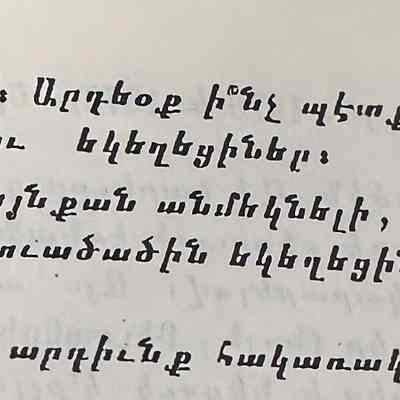 ։ Արդեօք ի՞նչ պէտք
եկեղեցիներ։
այնքան անմեկնելի,
ուածածին եկեղեցի
արդիւնք հակառակ